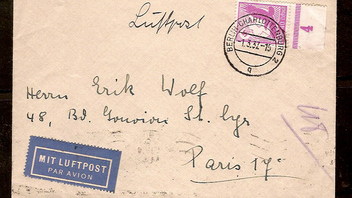 Luftpost
4
BERLIN-CHARLOTTENBURG 2
-1.3.37.-15
a
Herrn Erik Wolf
48, Bd. Gouvion St. Cyr
Paris 17e
MIT LUFTPOST
PAR AVION